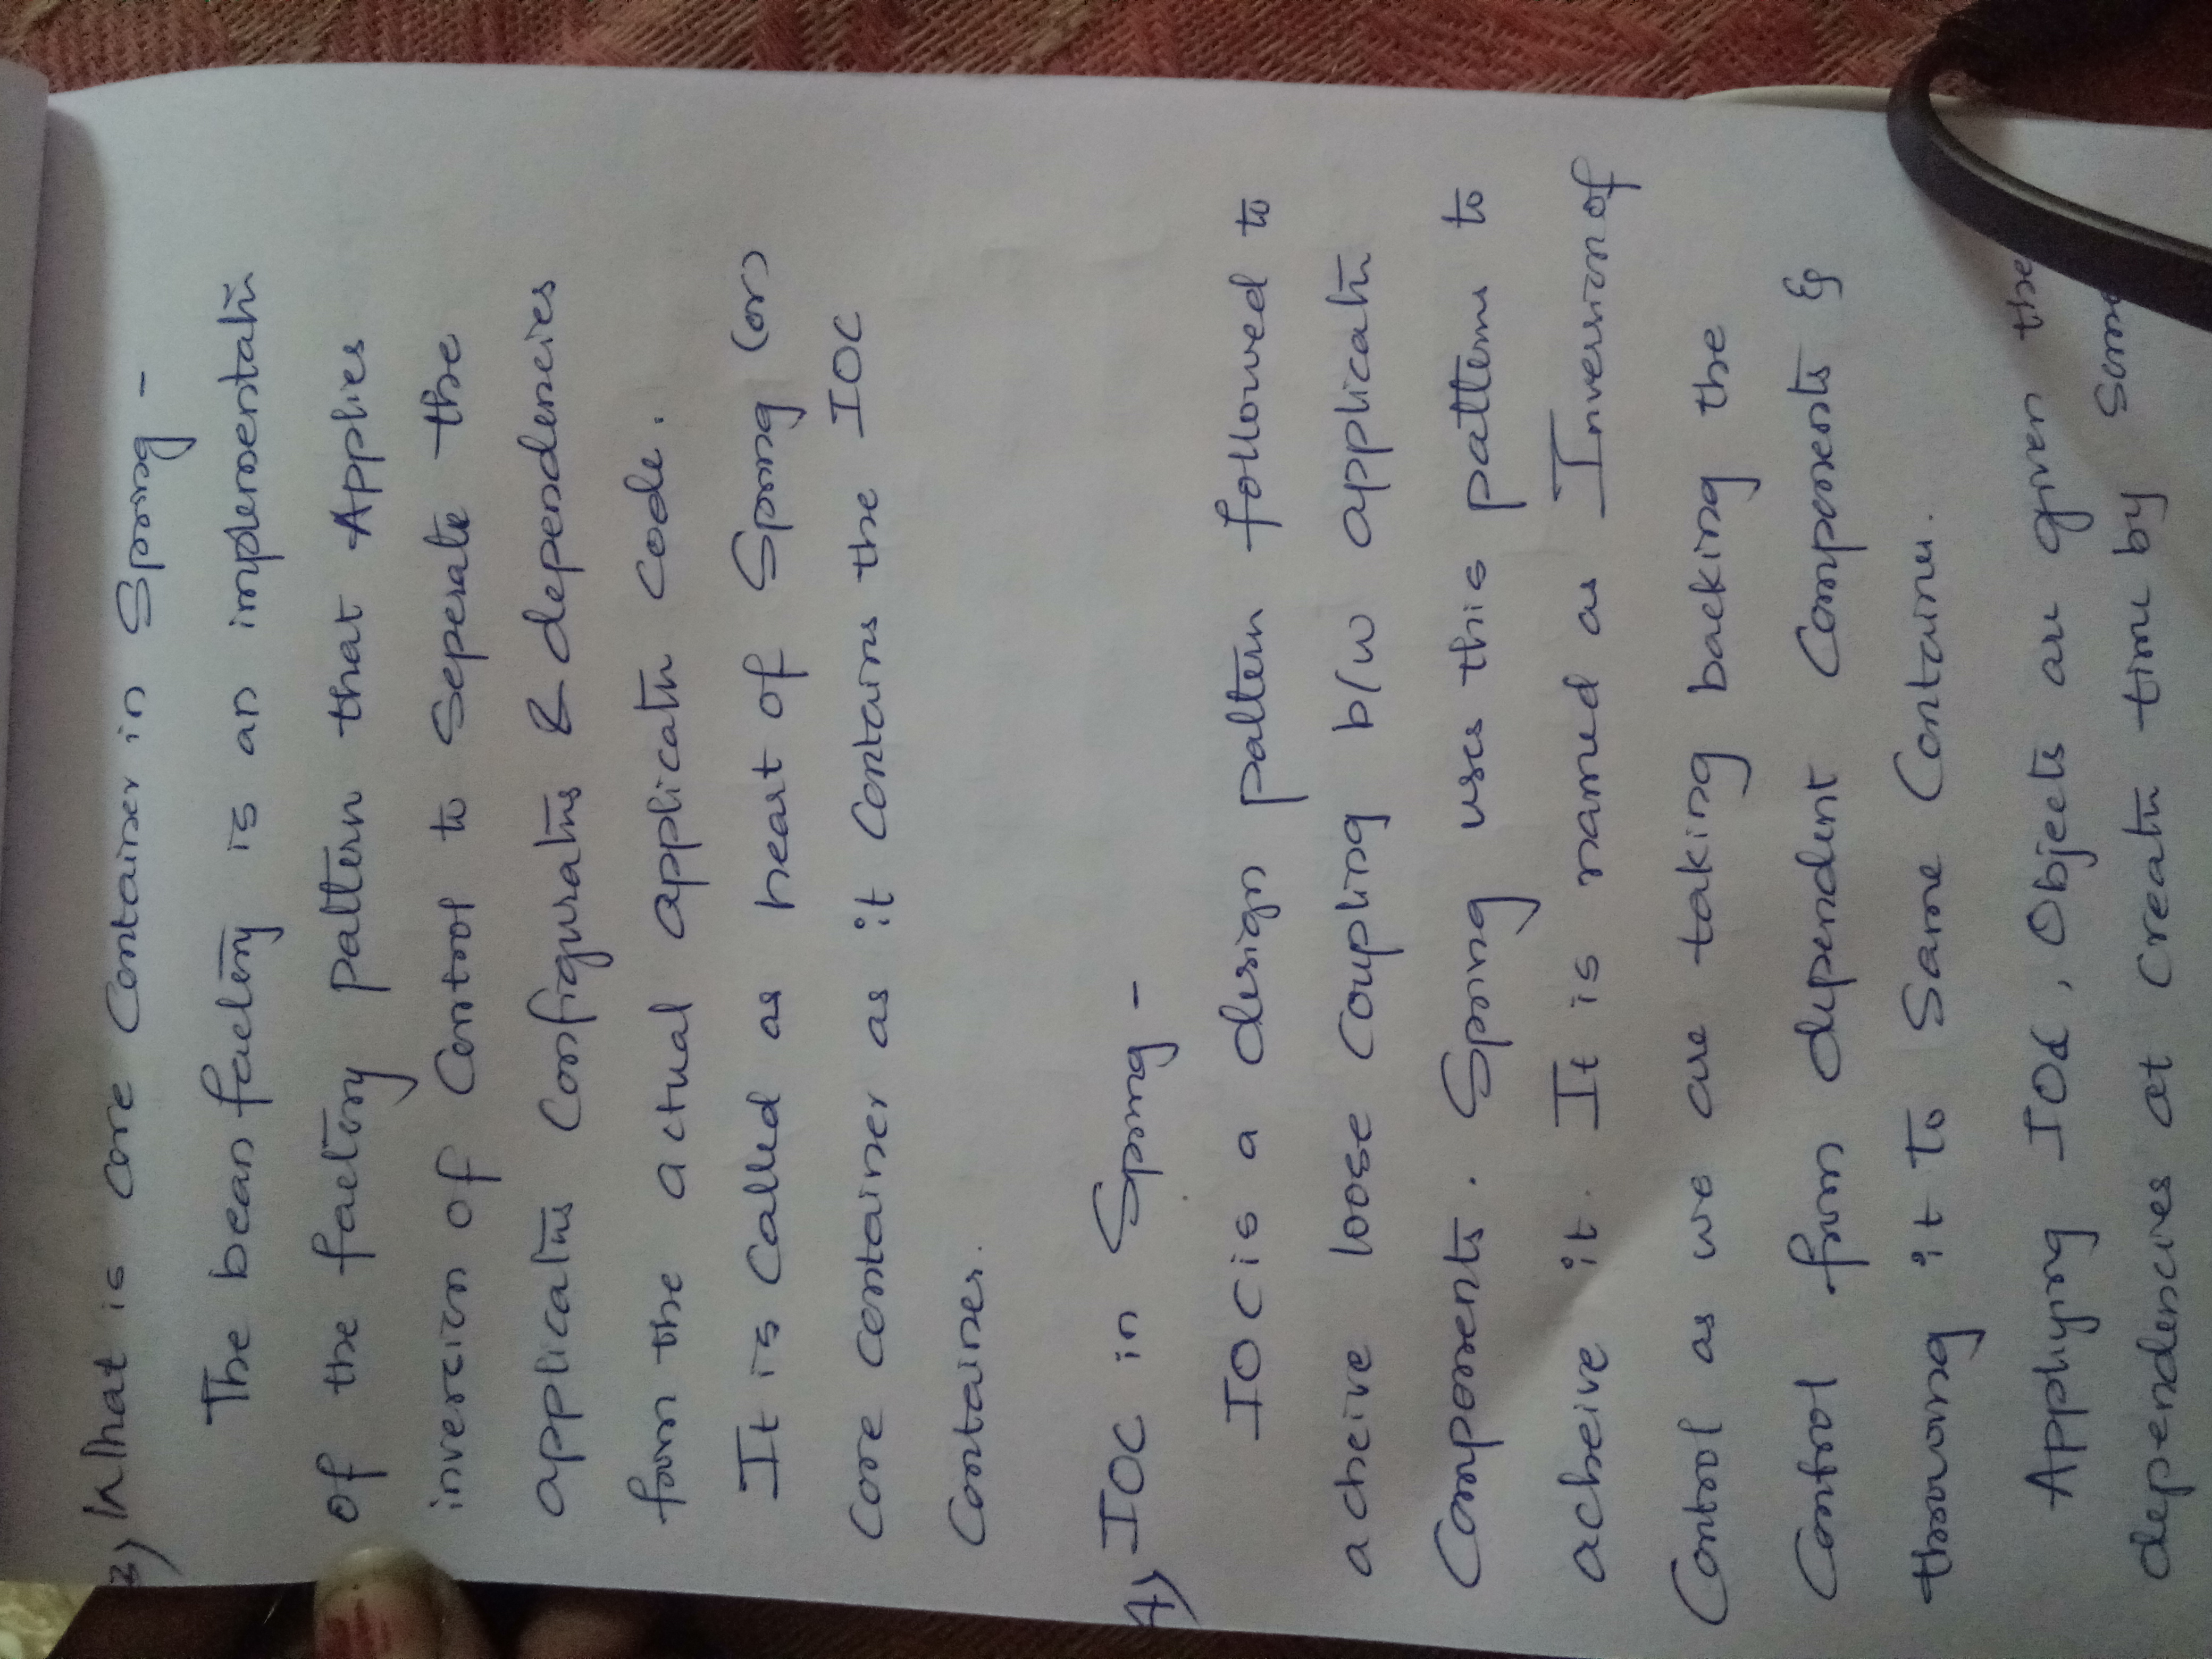 3) What is core Container in Spring -
The bean factory is an implementatn
of the factory pattern that Applies
invercion of Control to Seperate the
applicatns Configuratns & dependencies
from the actual applicatn code.
It is Called as heart of Spring (or)
Core container as it Contains the IOC
Container.
4) IOC in Spring -
IOC is a design pattern followed to
acheive loose Coupling b/w applicatn
Components. Spring uses this pattern to
acheive it. It is named as Inversion of
Control as we are taking backing the
Control from dependent Components &
throwing it to Same Container.
Applying IOC, Objects are given the
dependencies at Creatn time by Some